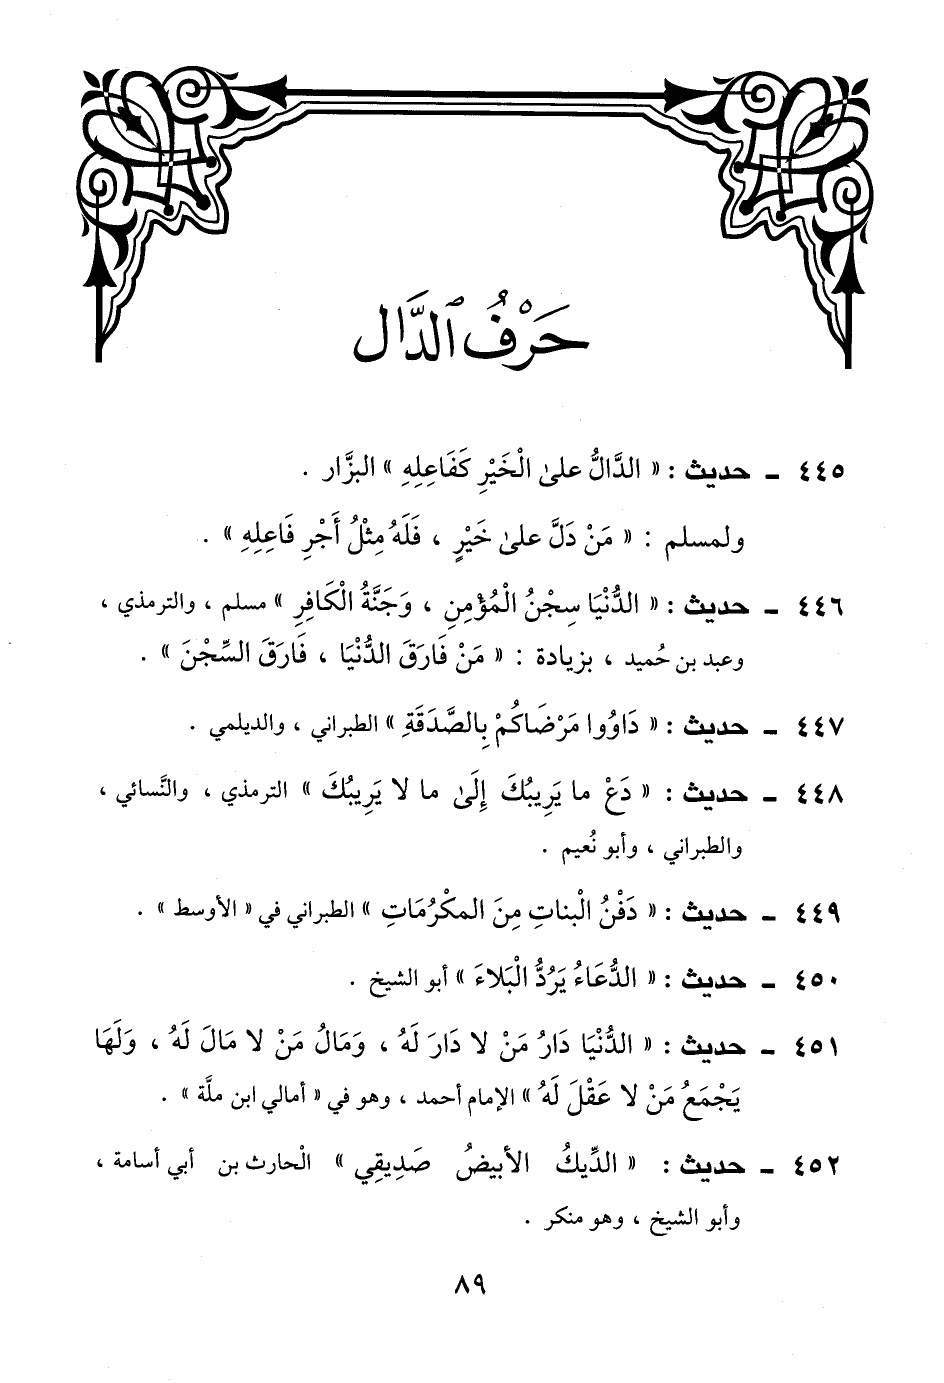 حَرْفُ ٱلدَّال
٤٤٥ ـ حديث : « الدَّالُّ علىٰ الْخَيْرِ كَفَاعِلِهِ » البزَّار .
ولمسلم : « مَنْ دَلَّ علىٰ خَيْرٍ ، فَلَهُ مِثْلُ أَجْرِ فَاعِلِهِ » .
٤٤٦ ـ حديث : « الدُّنْيَا سِجْنُ الْمُؤْمِنِ ، وَجَنَّةُ الْكَافِرِ » مسلم ، والترمذي ،
وعبد بن حُميد ، بزيادة : « مَنْ فَارَقَ الدُّنْيَا ، فَارَقَ السِّجْنَ » .
٤٤٧ ـ حديث : « دَاوُوا مَرْضَاكُمْ بِالصَّدَقَةِ » الطبراني ، والديلمي .
٤٤٨ ـ حديث : « دَعْ ما يَرِيبُكَ إِلَىٰ ما لا يَرِيبُكَ » الترمذي ، والنَّسائي ،
والطبراني ، وأبو نُعيم .
٤٤٩ ـ حديث : « دَفْنُ الْبناتِ مِنَ المكْرُمَاتِ » الطبراني في « الأوسط » .
٤٥٠ ـ حديث : « الدُّعَاءُ يَرُدُّ الْبَلاءَ » أبو الشيخ .
٤٥١ ـ حديث : « الدُّنْيَا دَارُ مَنْ لا دَارَ لَهُ ، وَمَالُ مَنْ لا مَالَ لَهُ ، وَلَهَا
يَجْمَعُ مَنْ لا عَقْلَ لَهُ » الإمام أحمد ، وهو في « أمالي ابن ملَّة » .
٤٥٢ ـ حديث : « الدِّيكُ الأبيضُ صَدِيقِي » الْحارث بن أبي أسامة ،
وأبو الشيخ ، وهو منكر .
٨٩